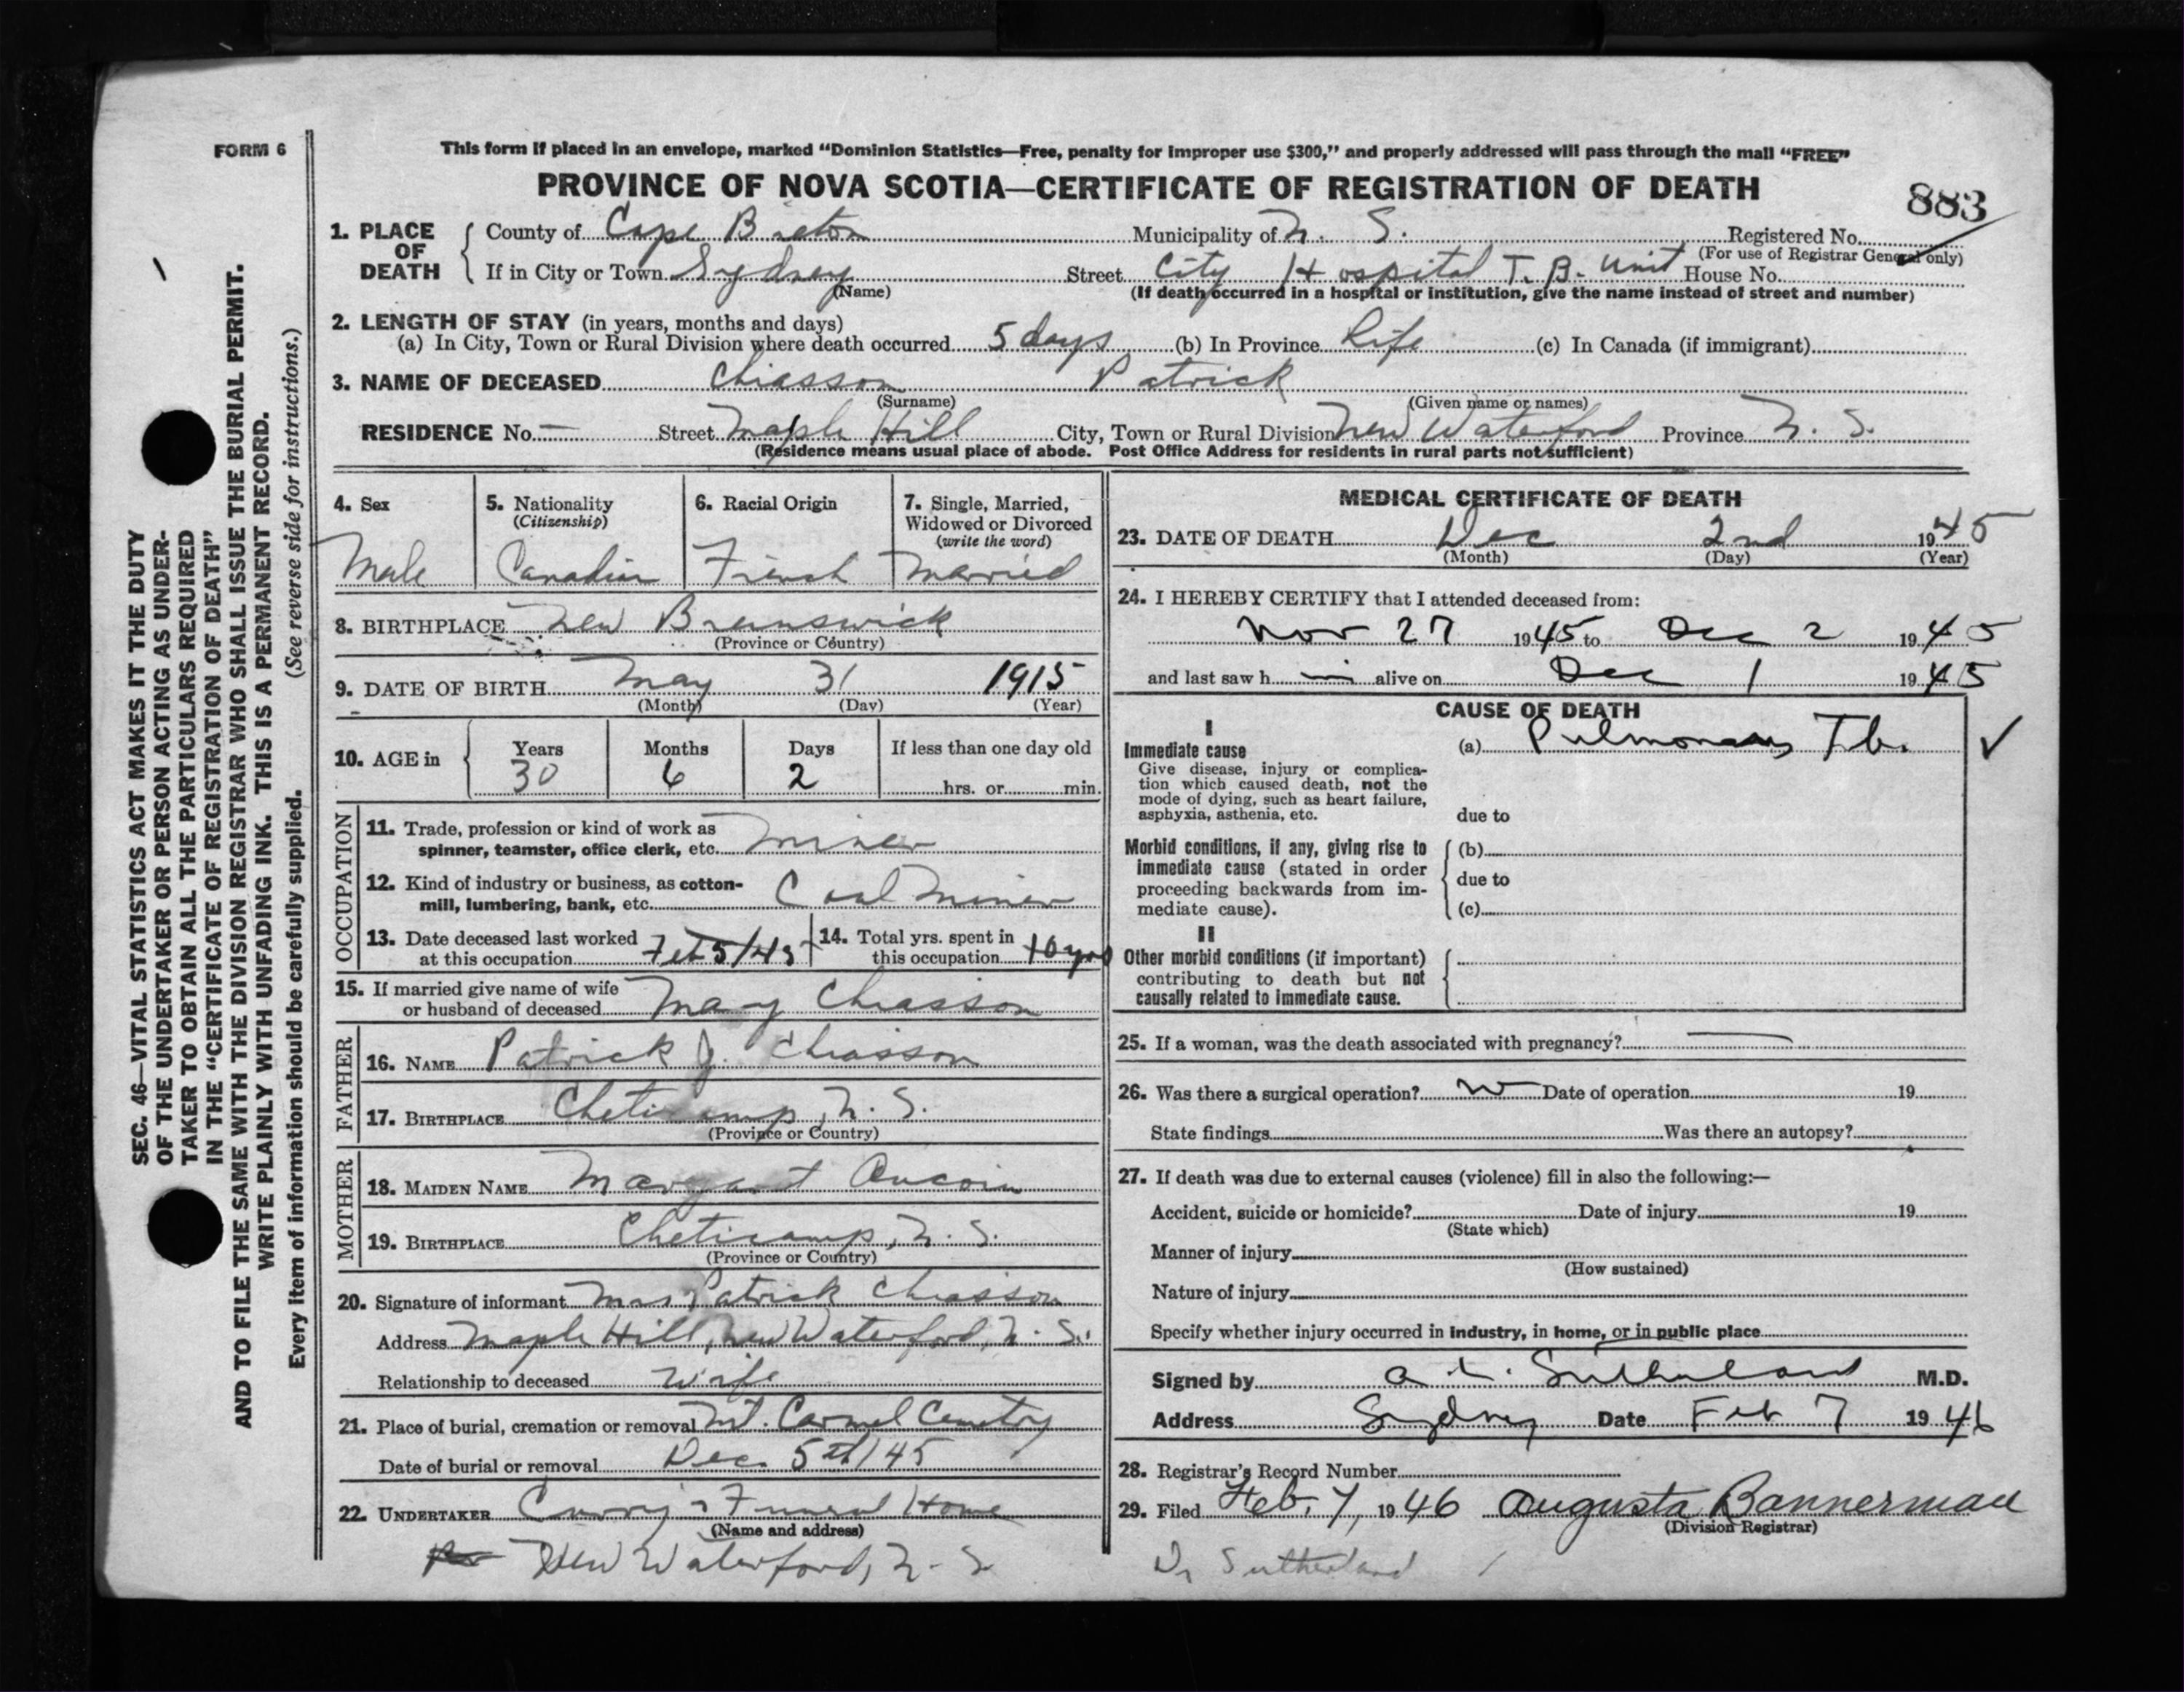 FORM 6
This form if placed in an envelope, marked “Dominion Statistics—Free, penalty for improper use $300,” and properly addressed will pass through the mail “FREE”
PROVINCE OF NOVA SCOTIA—CERTIFICATE OF REGISTRATION OF DEATH
883
1. PLACE OF DEATH County of Cape Breton Municipality of N. S. Registered No.
(For use of Registrar General only)
If in City or Town Sydney Street City Hospital T. B. Unit House No.
(Name) (If death occurred in a hospital or institution, give the name instead of street and number)
2. LENGTH OF STAY (in years, months and days)
(a) In City, Town or Rural Division where death occurred 5 days (b) In Province Life (c) In Canada (if immigrant)
3. NAME OF DECEASED Chiasson Patrick
(Surname) (Given name or names)
RESIDENCE No. — Street Maple Hill City, Town or Rural Division New Waterford Province N. S.
(Residence means usual place of abode. Post Office Address for residents in rural parts not sufficient)
4. Sex
Male
5. Nationality
(Citizenship)
Canadian
6. Racial Origin
French
7. Single, Married,
Widowed or Divorced
(write the word)
Married
8. BIRTHPLACE New Brunswick
(Province or Country)
9. DATE OF BIRTH May 31 1915
(Month) (Day) (Year)
10. AGE in Years Months Days If less than one day old
30 6 2 hrs. or min.
OCCUPATION
11. Trade, profession or kind of work as
spinner, teamster, office clerk, etc. Miner
12. Kind of industry or business, as cotton-
mill, lumbering, bank, etc. Coal Miner
13. Date deceased last worked
at this occupation Feb 5/45
14. Total yrs. spent in
this occupation 10 yrs
15. If married give name of wife
or husband of deceased Mary Chiasson
FATHER
16. NAME Patrick J. Chiasson
17. BIRTHPLACE Cheticamp, N. S.
(Province or Country)
MOTHER
18. MAIDEN NAME Margaret Aucoin
19. BIRTHPLACE Cheticamp, N. S.
(Province or Country)
20. Signature of informant Mrs Patrick Chiasson
Address Maple Hill, New Waterford, N. S.
Relationship to deceased Wife
21. Place of burial, cremation or removal Mt. Carmel Cemetry
Date of burial or removal Dec. 5th/45
22. UNDERTAKER Curry's Funeral Home
(Name and address)
New Waterford, N. S
MEDICAL CERTIFICATE OF DEATH
23. DATE OF DEATH Dec 2nd 1945
(Month) (Day) (Year)
24. I HEREBY CERTIFY that I attended deceased from:
Nov 27 1945 to Dec 2 1945
and last saw h im alive on Dec 1 1945
CAUSE OF DEATH
I
Immediate cause (a) Pulmonary Tb. ✓
Give disease, injury or complica-
tion which caused death, not the
mode of dying, such as heart failure,
asphyxia, asthenia, etc. due to
Morbid conditions, if any, giving rise to (b)
immediate cause (stated in order
proceeding backwards from im- due to
mediate cause). (c)
II
Other morbid conditions (if important)
contributing to death but not
causally related to immediate cause.
25. If a woman, was the death associated with pregnancy? —
26. Was there a surgical operation? No Date of operation 19
State findings Was there an autopsy?
27. If death was due to external causes (violence) fill in also the following:—
Accident, suicide or homicide? Date of injury 19
(State which)
Manner of injury
(How sustained)
Nature of injury
Specify whether injury occurred in industry, in home, or in public place
Signed by A. L. Sutherland M.D.
Address Sydney Date Feb 7 1946
28. Registrar's Record Number
29. Filed Feb. 7, 1946 Augusta Bannerman
(Division Registrar)
Dr Sutherland /
SEC. 46—VITAL STATISTICS ACT MAKES IT THE DUTY
OF THE UNDERTAKER OR PERSON ACTING AS UNDER-
TAKER TO OBTAIN ALL THE PARTICULARS REQUIRED
IN THE “CERTIFICATE OF REGISTRATION OF DEATH”
AND TO FILE THE SAME WITH THE DIVISION REGISTRAR WHO SHALL ISSUE THE BURIAL PERMIT.
WRITE PLAINLY WITH UNFADING INK. THIS IS A PERMANENT RECORD.
Every item of information should be carefully supplied. (See reverse side for instructions.)